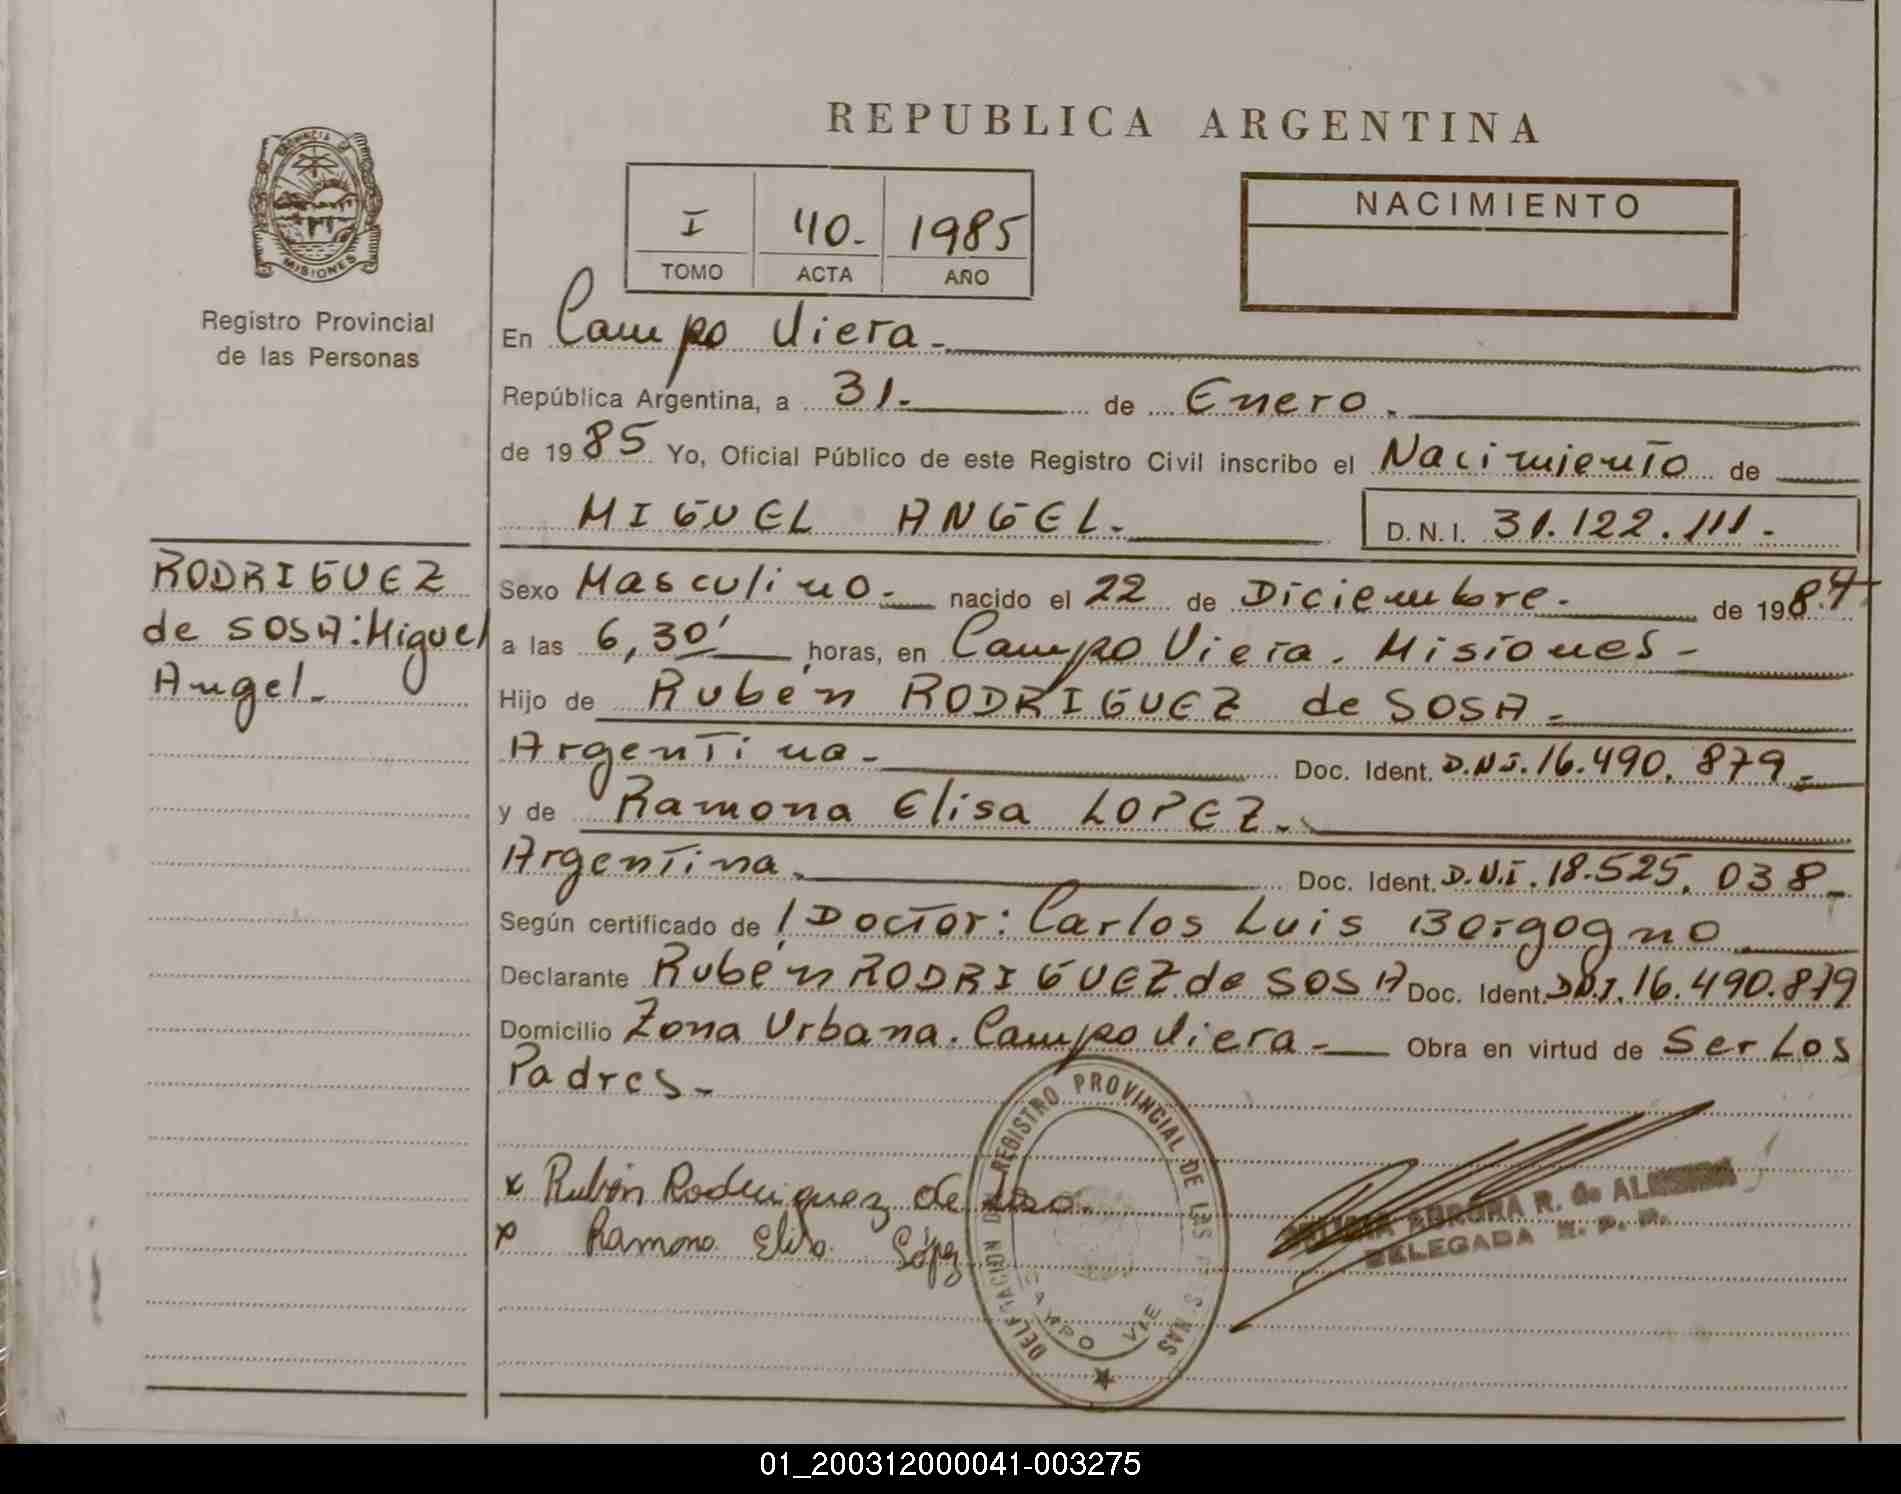 REPUBLICA ARGENTINA
PROVINCIA
MISIONES
Registro Provincial
de las Personas
I 40.- 1985
TOMO ACTA AÑO
NACIMIENTO
En Campo Viera.-
República Argentina, a 31.- de Enero.
de 1985 Yo, Oficial Público de este Registro Civil inscribo el Nacimiento de
MIGUEL ANGEL.- D.N.I. 31.122.111.-
RODRIGUEZ
de SOSA: Miguel
Angel.-
Sexo Masculino.- nacido el 22 de Diciembre.- de 1984
a las 6,30' horas, en Campo Viera. Misiones-
Hijo de Rubén RODRIGUEZ de SOSA.-
Argentina.- Doc. Ident. D.N.I. 16.490.879.-
y de Ramona Elisa LOPEZ.-
Argentina. Doc. Ident. D.N.I. 18.525.038-
Según certificado de Doctor: Carlos Luis Borgogno
Declarante Rubén RODRIGUEZ de SOSA Doc. Ident. D.N.I. 16.490.879
Domicilio Zona Urbana. Campo Viera.- Obra en virtud de Ser Los
Padres.-
x Rubén Rodriguez de Soso.
x Ramona Elisa López
DELEGACION DEL REGISTRO PROVINCIAL DE LAS
CAMPO VIE
AURORA R. de
DELEGADA R. P. P.
01_200312000041-003275